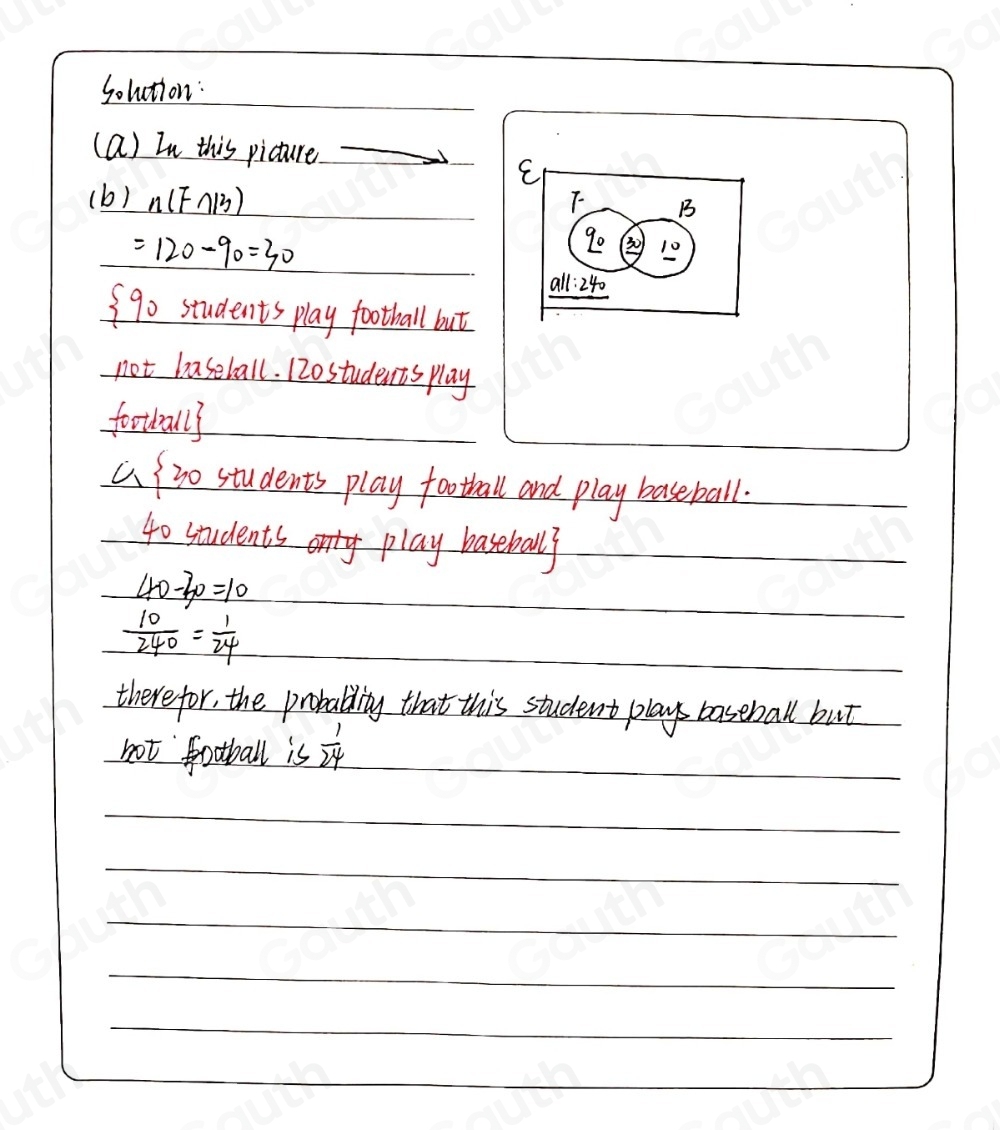 Solution:
(a) In this picture
(b) n(F∩B)
= 120-90=30
{90 students play football but
not baseball. 120 students play
football}
{30 students play football and play baseball.
40 students only play baseball}
40-30=10
10/240 = 1/24
therefor, the probability that this student plays baseball but
not football is 1/24
ε
F B
90 30 10
all:240
Gauth